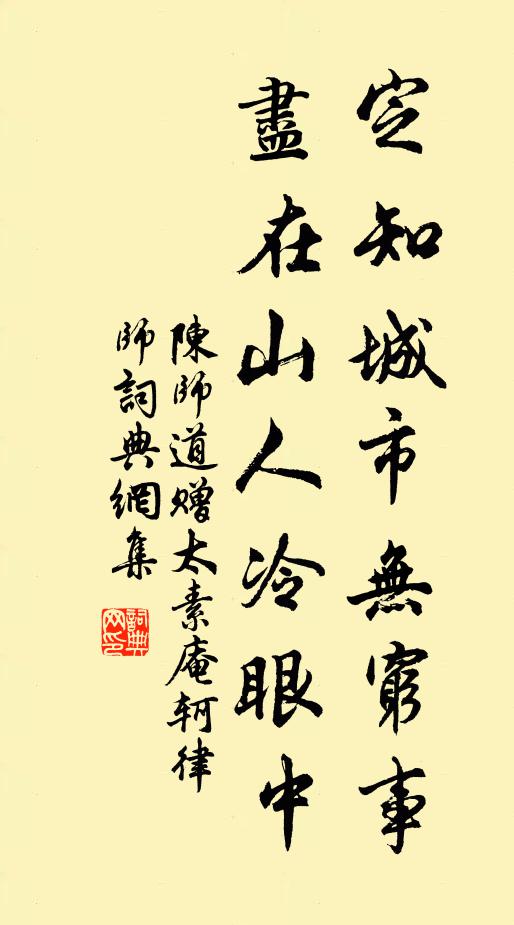 定知城市無窮事
盡在山人冷眼中
陳師道贈太素庵軻律
師詞典網集
詞典
网印